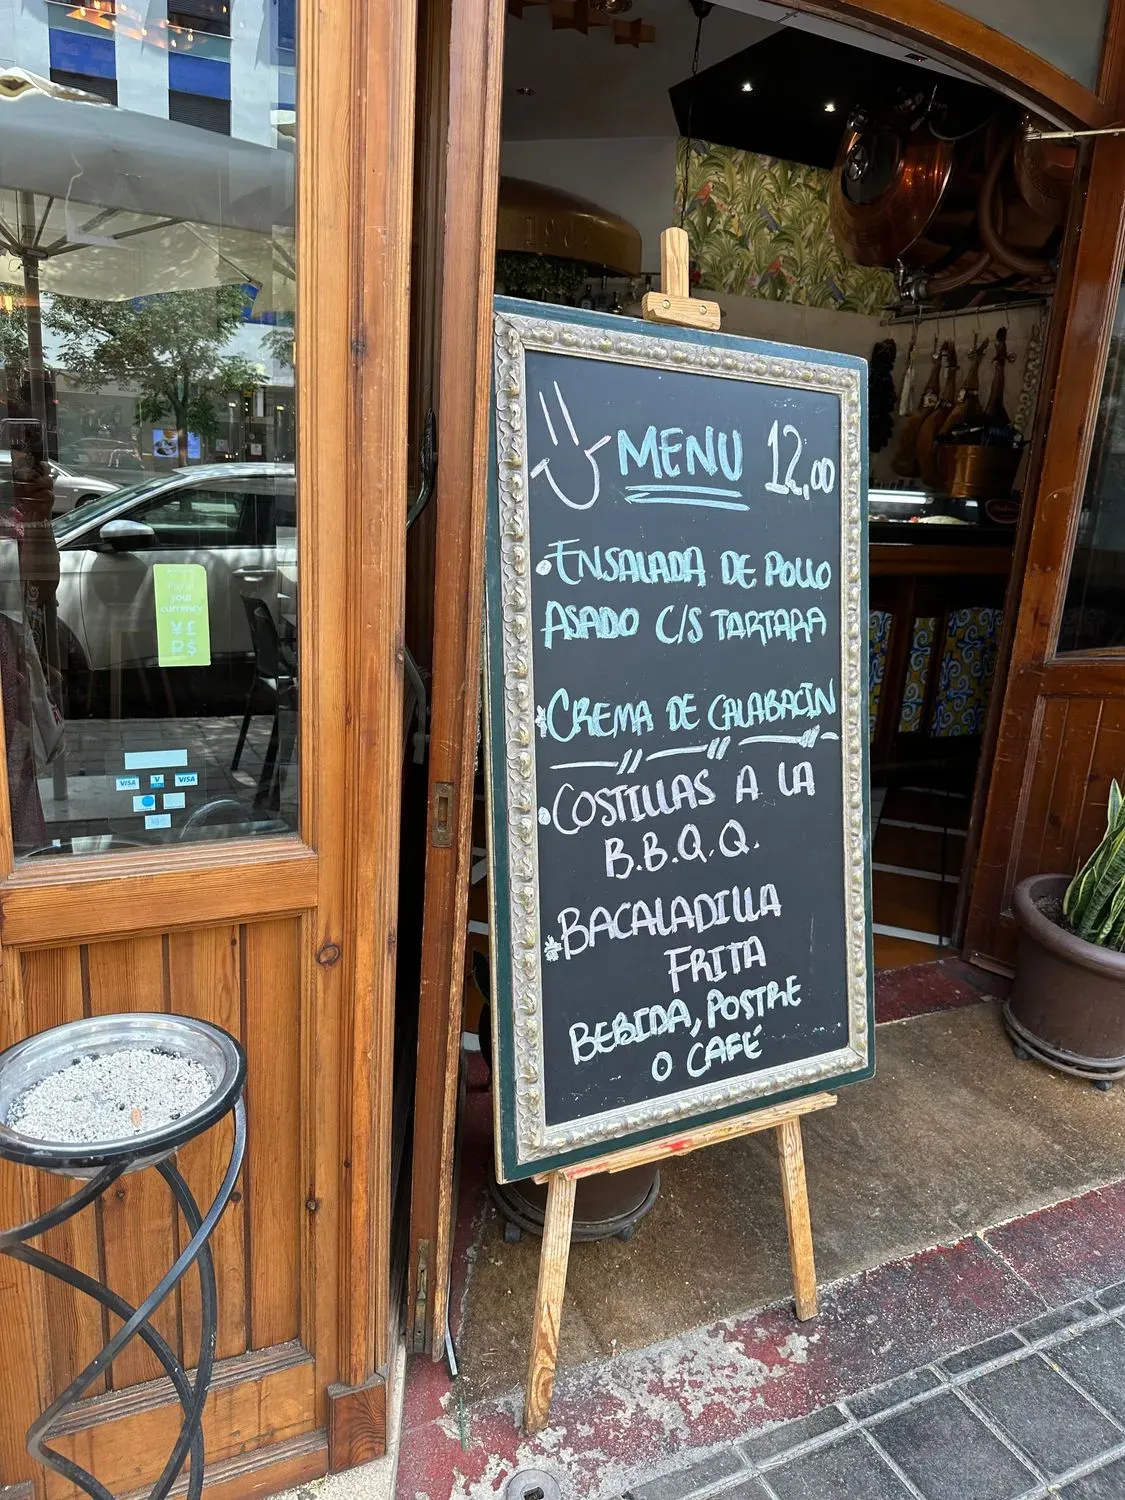 MENU 12,00
•ENSALADA DE POLLO
ASADO C/S TARTARA
*CREMA DE CALABACÍN
•COSTILLAS A LA
B.B.Q.Q.
*BACALADILLA
FRITA
BEBIDA, POSTRE
O CAFÉ
your
currency
¥£
₽$
VISA
V
VISA